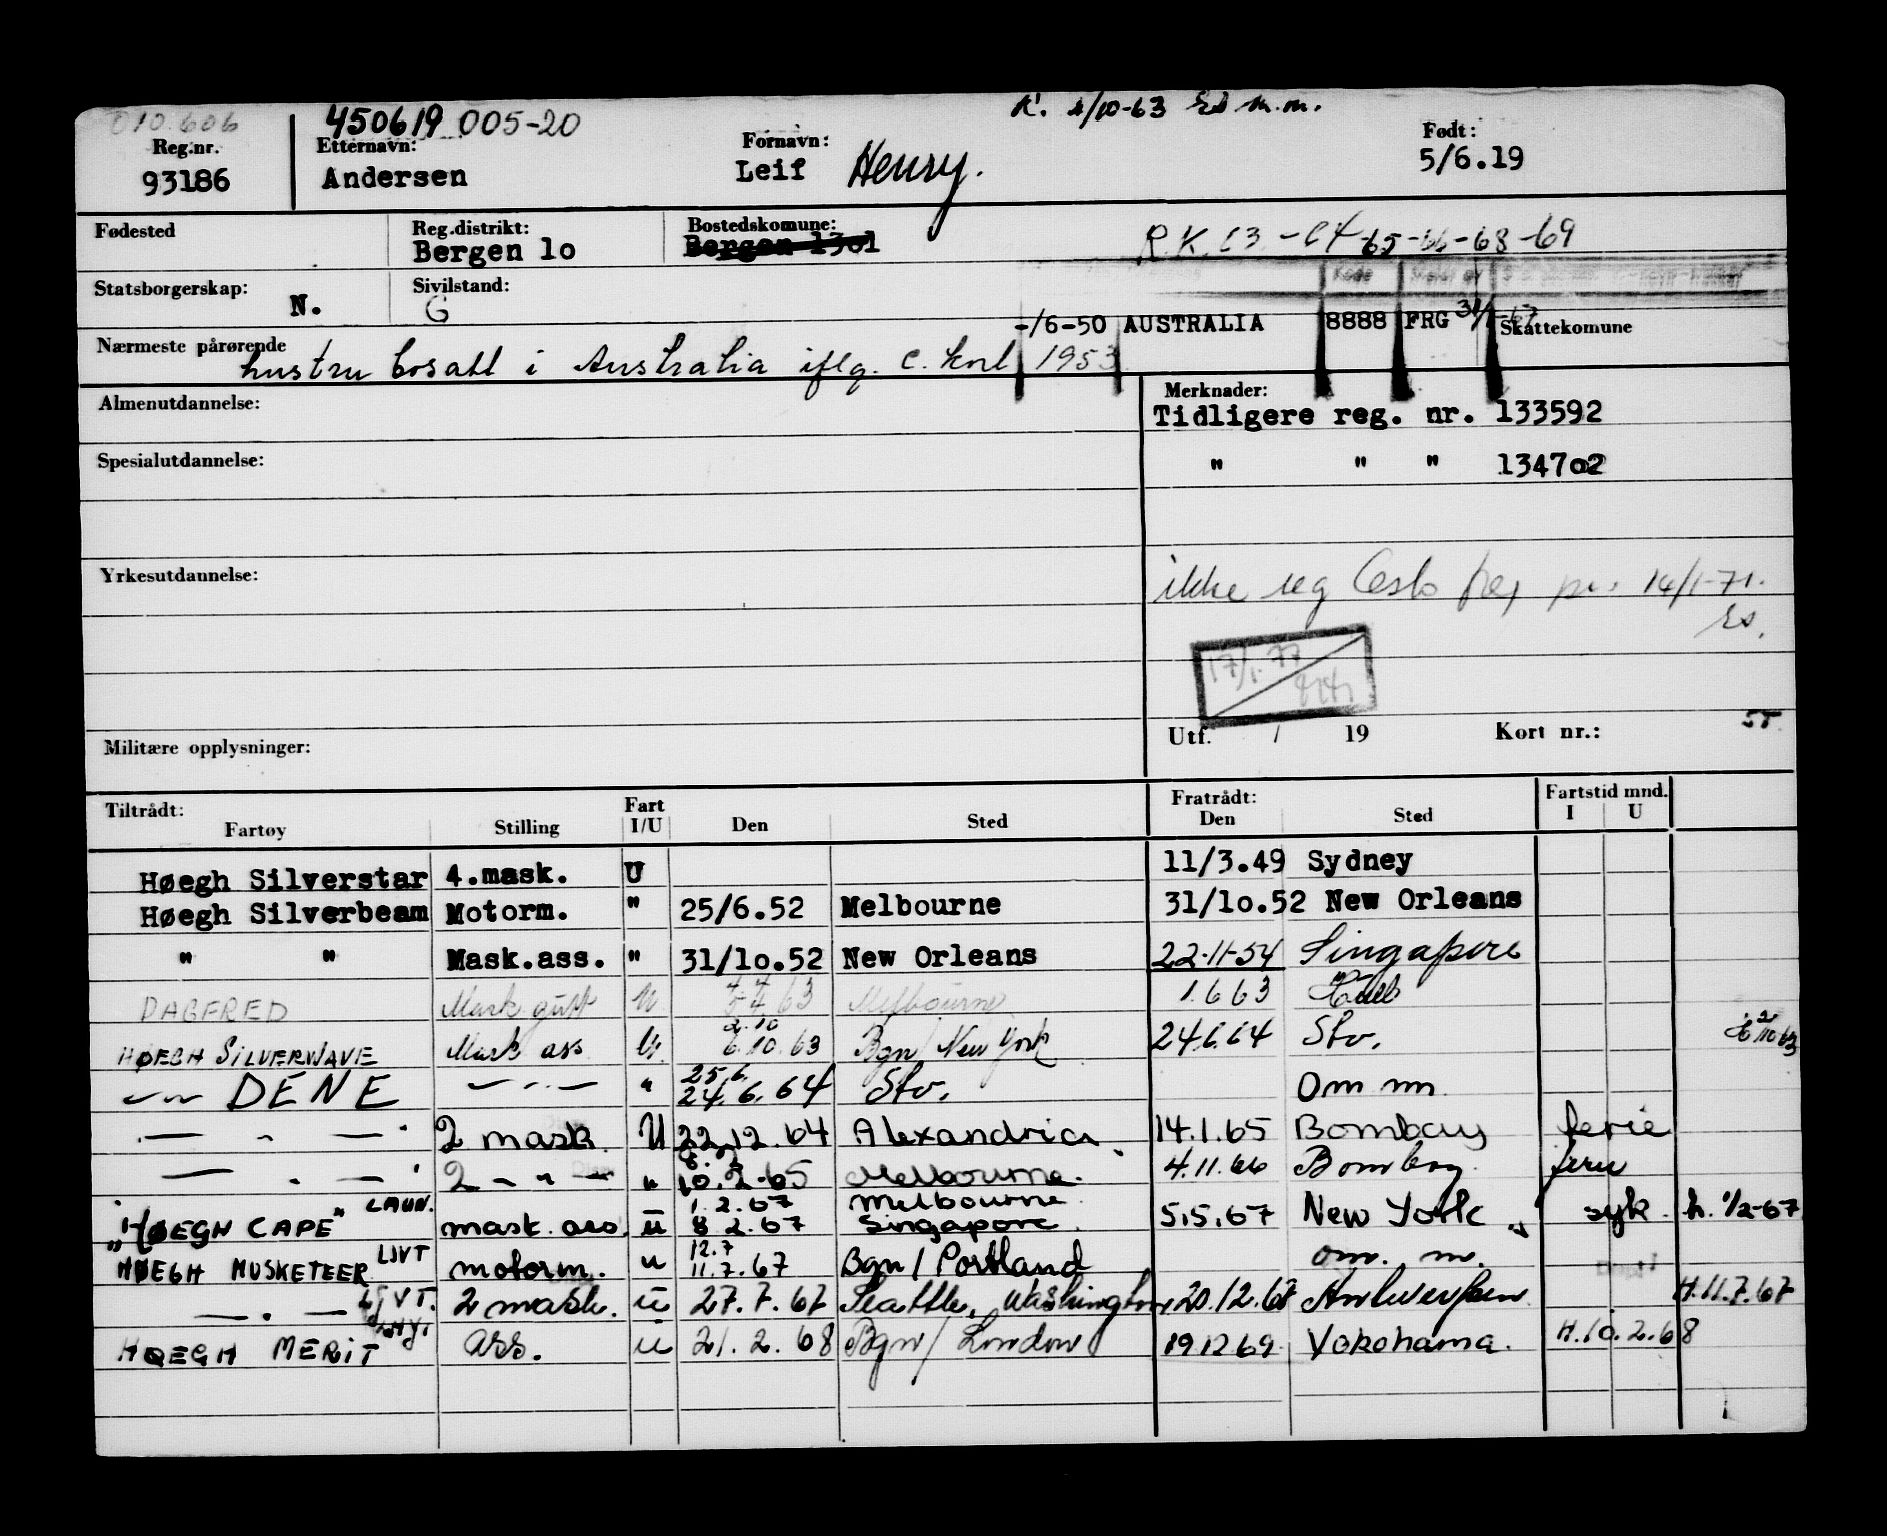 010.606 450619 005-20 K. 2/10-63 m.m.
Reg.nr. Etternavn: Fornavn: Født:
93186 Andersen Leif Henry. 5/6.19
Fødested Reg.distrikt: Bostedskomune:
Bergen 1o Bergen 13o1 R.K. 63-64-65-66-68-69
Statsborgerskap: Sivilstand: Kode
N. G
-/6-50 AUSTRALIA 8888 FRG Skattekomune
Nærmeste pårørende
hustru bosatt i Australia iflg. C. kort 1953
Almenutdannelse: Merknader:
Tidligere reg. nr. 133592
Spesialutdannelse: " " " 134702
Yrkesutdannelse: ikke reg Oslo 14/1-71.
17/1.77
Militære opplysninger: Utf. / 19 Kort nr.:
Tiltrådt: Fart Fratrådt: Fartstid mnd.
Fartøy Stilling I/U Den Sted Den Sted I U
Høegh Silverstar 4.mask. U 11/3.49 Sydney
Høegh Silverbeam Motorm. " 25/6.52 Melbourne 31/1o.52 New Orleans
" " Mask.ass. " 31/1o.52 New Orleans 22-11-54 Singapore
DAGFRED Mask gutt U 4.63 Melbourne 1.6 63
HØEGH SILVERWAVE Mask ass U. 2.10 6.10.63 Bgn/ New York 24.6.64 Stv. 2/10 63
— " — DENE — " — " 25.6. 24.6.64 Stv. Om mn.
— " — " 2 mask. U 22.12.64 Alexandria 14.1.65 Bombay ferie
— " — " 2 — " — " 8.2 10.2-65 Melbourne. 4.11.66 Bombay ferie
"HØEGH CAPE" LAUR. mask. ass. u 1.2.67 8.2.67 Melbourne Singapore. 5.5.67 New York syk. h. 1/2-67
HØEGH MUSKETEER LIVT motorm. u 12.7 11.7.67 Bgn/ Portland om. m.
— " — 2 mask. u 27.7.67 Seattle, Washington 20.12.67 Antwerpen H.11.7.67
HØEGH MERIT ass. u 21.2.68 Bgn/ London 19 12 69 Yokohama. H.10.2.68